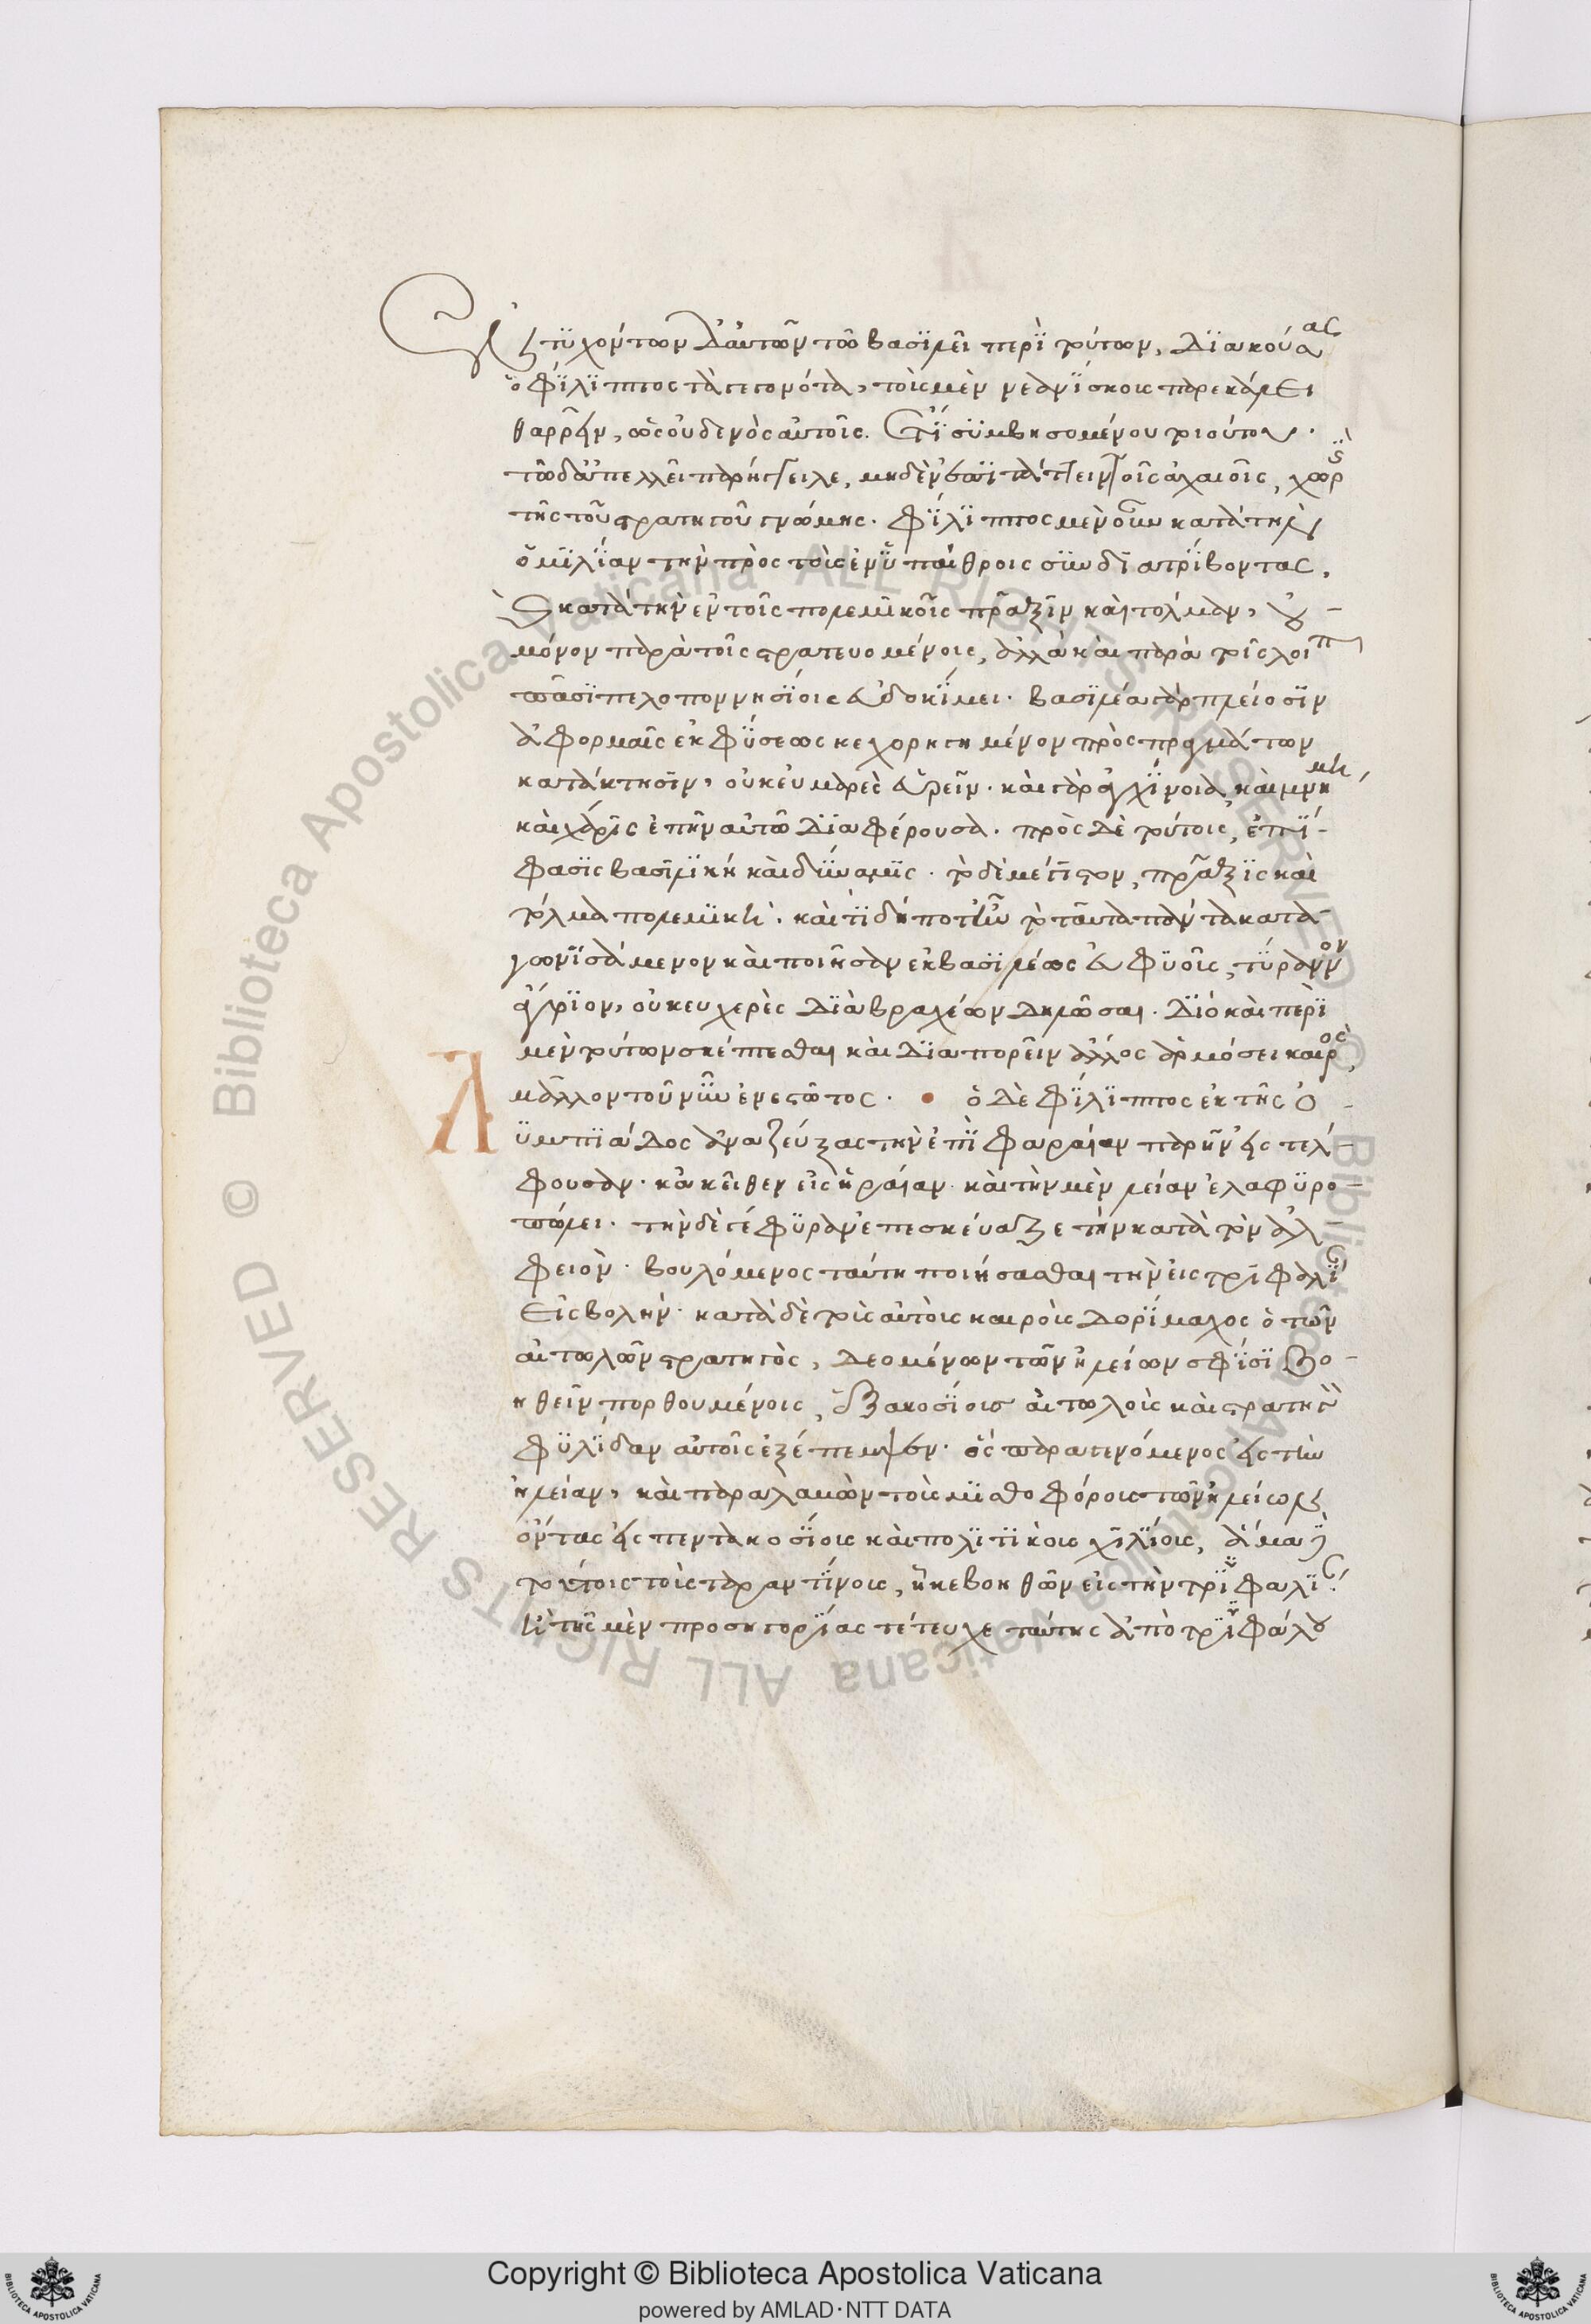 Ἐντυχόντων δ' αὐτῶν τῶ βασιλεῖ περὶ τούτων, διακούσας
ὁ φίλιππος τὰ γεγονότα, τοὺς μὲν νεανίσκους παρεκάλει
θαρρεῖν, ὡς οὐδενὸς αὐτοῖς ἔτι συμβησομένου τοιούτου·
τῶ δ' ἀπελλεῖ παρήγγειλε, μηδὲν ἐπιτάττειν τοῖς ἀχαιοῖς, χωρὶς
τῆς τοῦ στρατηγοῦ γνώμης· φίλιππος μὲν οὖν κατὰ τὴν
ὁμιλίαν τὴν πρὸς τοὺς ἐν ὑπαίθροις συνδιατρίβοντας,
καὶ κατὰ τὴν ἐν τοῖς πολεμικοῖς πρᾶξιν καὶ τόλμαν, οὐ
μόνον παρὰ τοῖς στρατευομένοις, ἀλλὰ καὶ παρὰ τοῖς λοιποῖς
πᾶσι πελοποννησίοις εὐδοκίμει· βασιλέα γὰρ πλείοσιν
ἀφορμαῖς ἐκ φύσεως κεχορηγημένον πρὸς πραγμάτων
κατάκτησιν, οὐκ εὐμαρὲς εὑρεῖν· καὶ γὰρ ἀγχίνοια, καὶ μνήμη
καὶ χάρις ἐπῆν αὐτῶ διαφέρουσα· πρὸς δὲ τούτοις, ἐπί-
φασις βασιλικὴ καὶ δύναμις· τὸ δὲ μέγιστον, πρᾶξις καὶ
τόλμα πολεμική· καὶ τί δή ποτ' ἦν τὸ ταῦτα πάντα κατα-
γωνισάμενον καὶ ποιῆσαν ἐκ βασιλέως εὐφυοῦς, τύραννον
ἄγριον, οὐκ εὐχερὲς διὰ βραχέων δηλῶσαι· διὸ καὶ περὶ
μὲν τούτων σκέπτεσθαι καὶ διαπορεῖν ἄλλος ἁρμόσει καιρὸς
μᾶλλον τοῦ νῦν ἐνεστῶτος· ὁ δὲ φίλιππος ἐκ τῆς ὀ-
λυμπιάδος ἀναζεύξας τὴν ἐπὶ φαραίαν παρῆν εἰς τέλ-
φουσαν· κἀκεῖθεν εἰς ἡραίαν· καὶ τὴν μὲν λείαν ἐλαφυρο-
πώλει· τὴν δὲ γέφυραν ἐπεσκεύαζε τὴν κατὰ τὸν ἀλ-
φειόν· βουλόμενος ταύτη ποιήσασθαι τὴν εἰς τριφαλίαν
εἰσβολήν· κατὰ δὲ τοὺς αὐτοὺς καιροὺς δορίμαχος ὁ τῶν
αἰτωλῶν στρατηγὸς, δεομένων τῶν ἠλείων σφίσι βο-
ηθεῖν πορθουμένοις, ἑξακοσίους αἰτωλοὺς καὶ στρατηγὸν
φυλίδαν αὐτοῖς ἐξέπεμψεν· ὃς παραγενόμενος εἰς τὴν
ἠλείαν, καὶ παραλαβὼν τοὺς μισθοφόρους τῶν ἠλείων
ὄντας εἰς πεντακοσίους καὶ πολιτικοὺς χιλίους, ἅμα δὲ
τούτοις τοὺς ταραντίνους, ἧκε βοηθῶν εἰς τὴν τριφυλίαν·
ἣ τῆς μὲν προσηγορίας τέτευχε ταύτης ἀπὸ τριφύλου